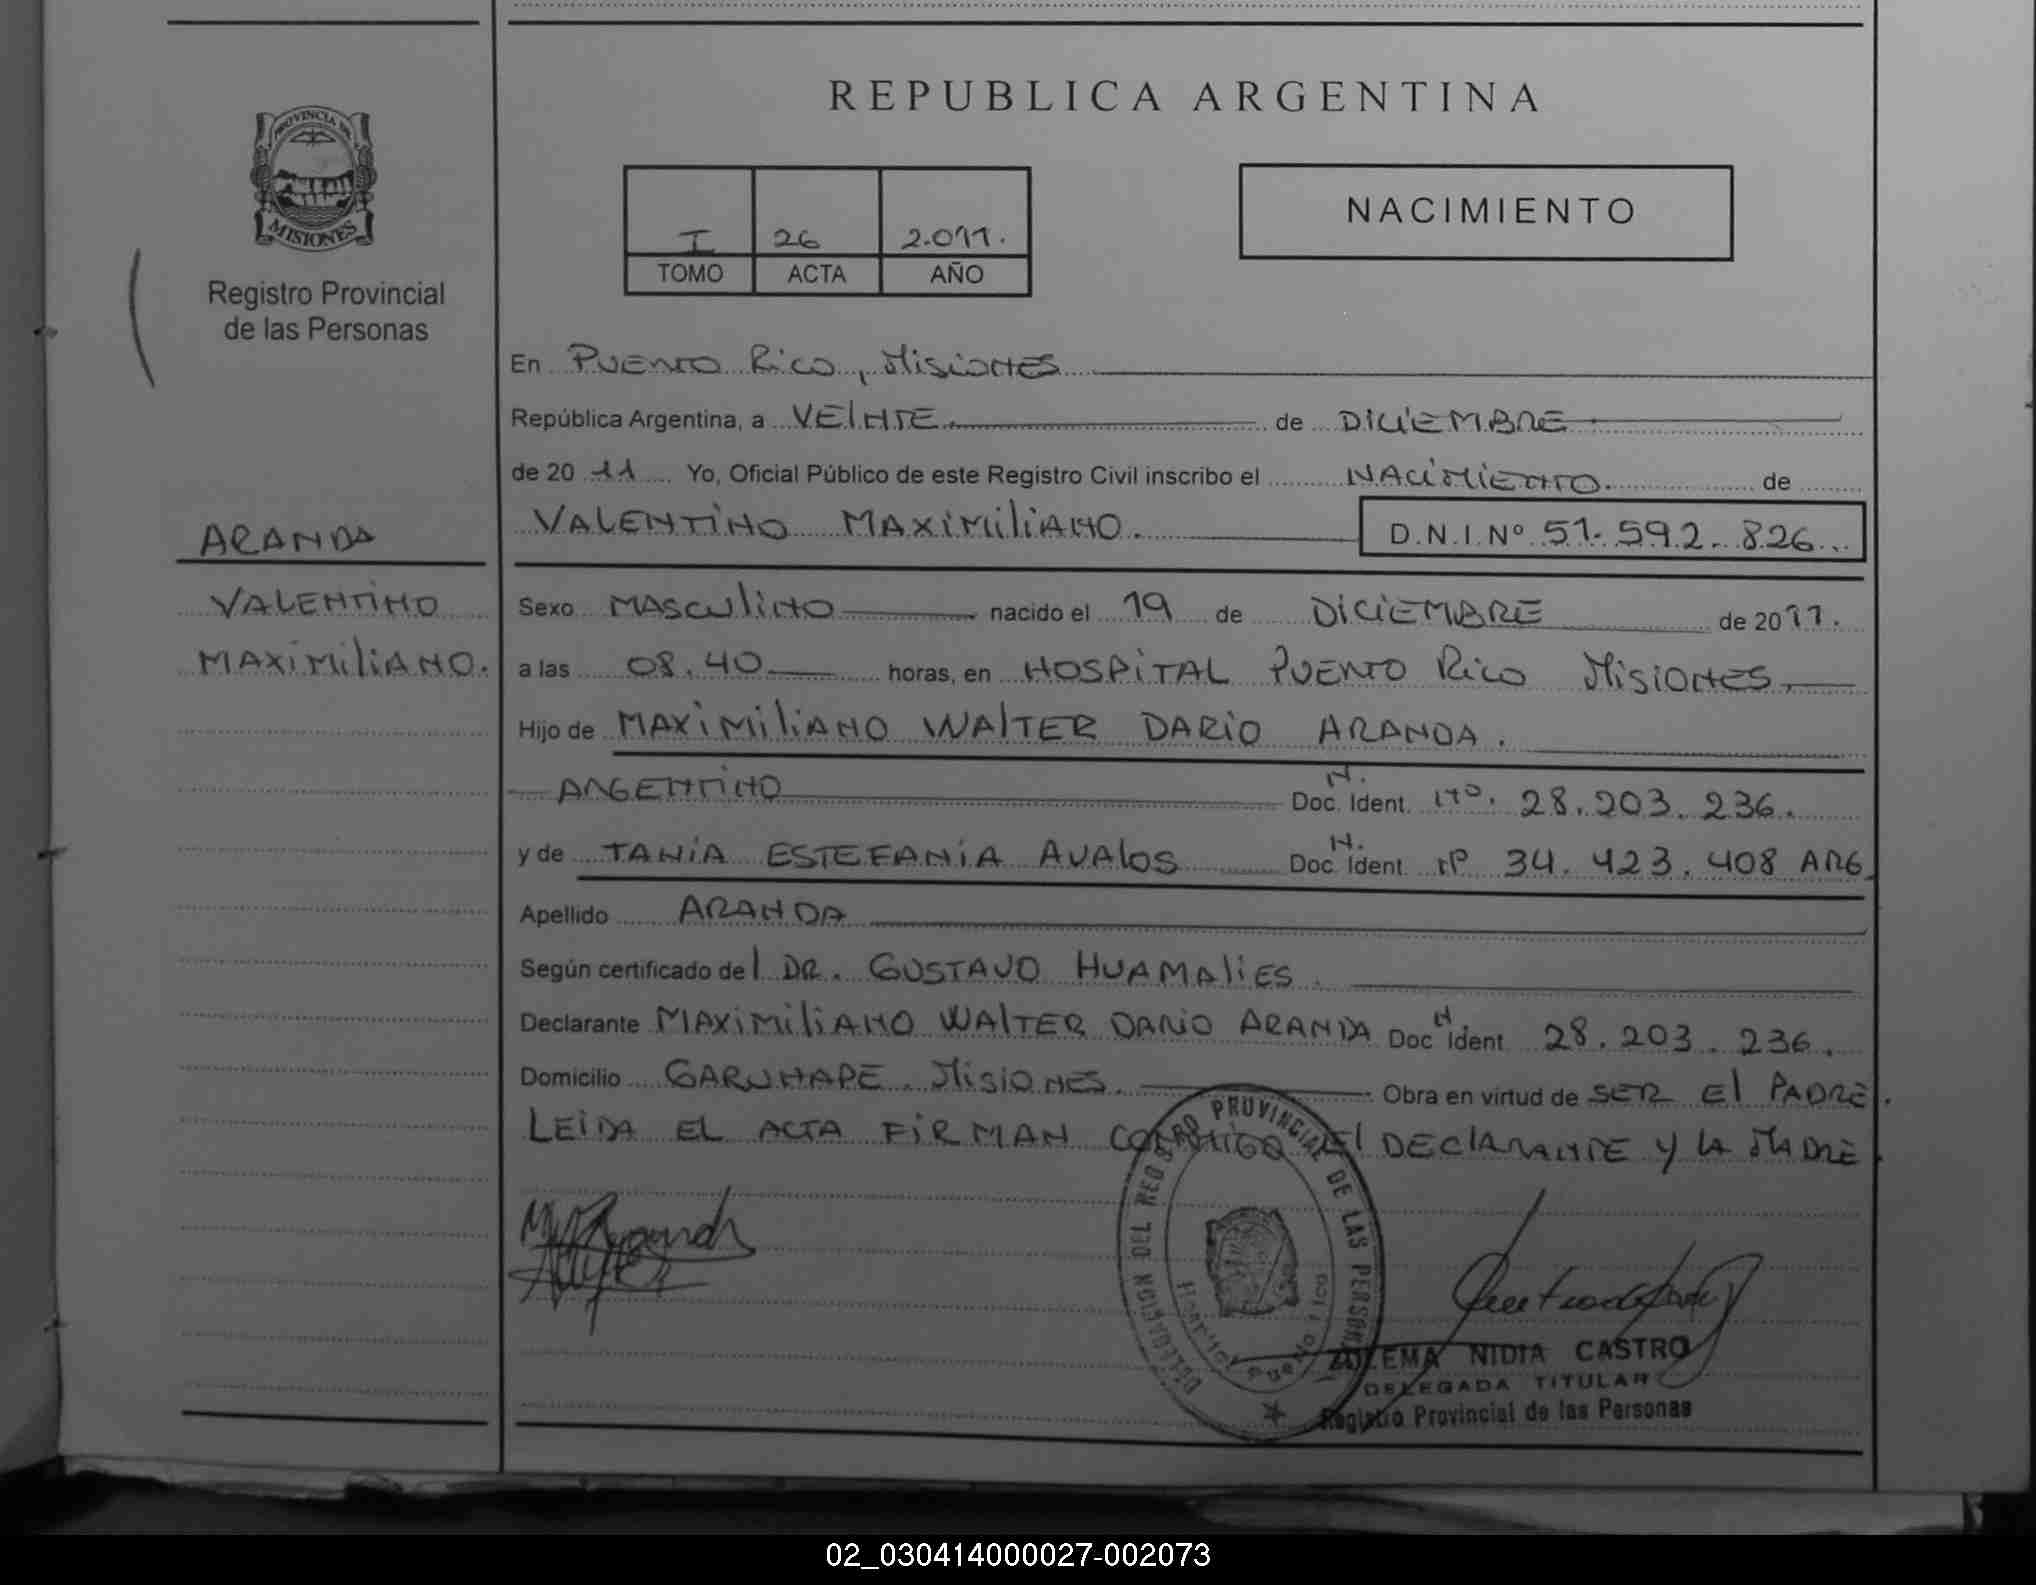 REPUBLICA ARGENTINA
PROVINCIA DE
MISIONES
Registro Provincial
de las Personas
I 26 2.011.
TOMO ACTA AÑO
NACIMIENTO
En PUERTO RICO, MISIONES
República Argentina, a VEINTE de DICIEMBRE
de 20 11 Yo, Oficial Público de este Registro Civil inscribo el NACIMIENTO. de
VALENTINO MAXIMILIANO. D.N.I.Nº 51.592.826
ARANDA
VALENTINO
MAXIMILIANO.
Sexo MASCULINO nacido el 19 de DICIEMBRE de 2011.
a las 08.40 horas, en HOSPITAL PUERTO RICO MISIONES.
Hijo de MAXIMILIANO WALTER DARIO ARANDA.
ARGENTINO Doc. N. Ident. Nº. 28.203.236.
y de TANIA ESTEFANIA AVALOS Doc. N. Ident. Nº 34.423.408 ARG.
Apellido ARANDA
Según certificado del DR. GUSTAVO HUAMALIES.
Declarante MAXIMILIANO WALTER DARIO ARANDA Doc N Ident 28.203.236.
Domicilio GARUHAPE MISIONES. Obra en virtud de SER EL PADRE.
LEIDA EL ACTA FIRMAN CONMIGO EL DECLARANTE Y LA MADRE.
DELEGACION DEL REGISTRO PROVINCIAL DE LAS PERSONAS
Puerto Rico
ZULEMA NIDIA CASTRO
DELEGADA TITULAR
Registro Provincial de las Personas
02_030414000027-002073